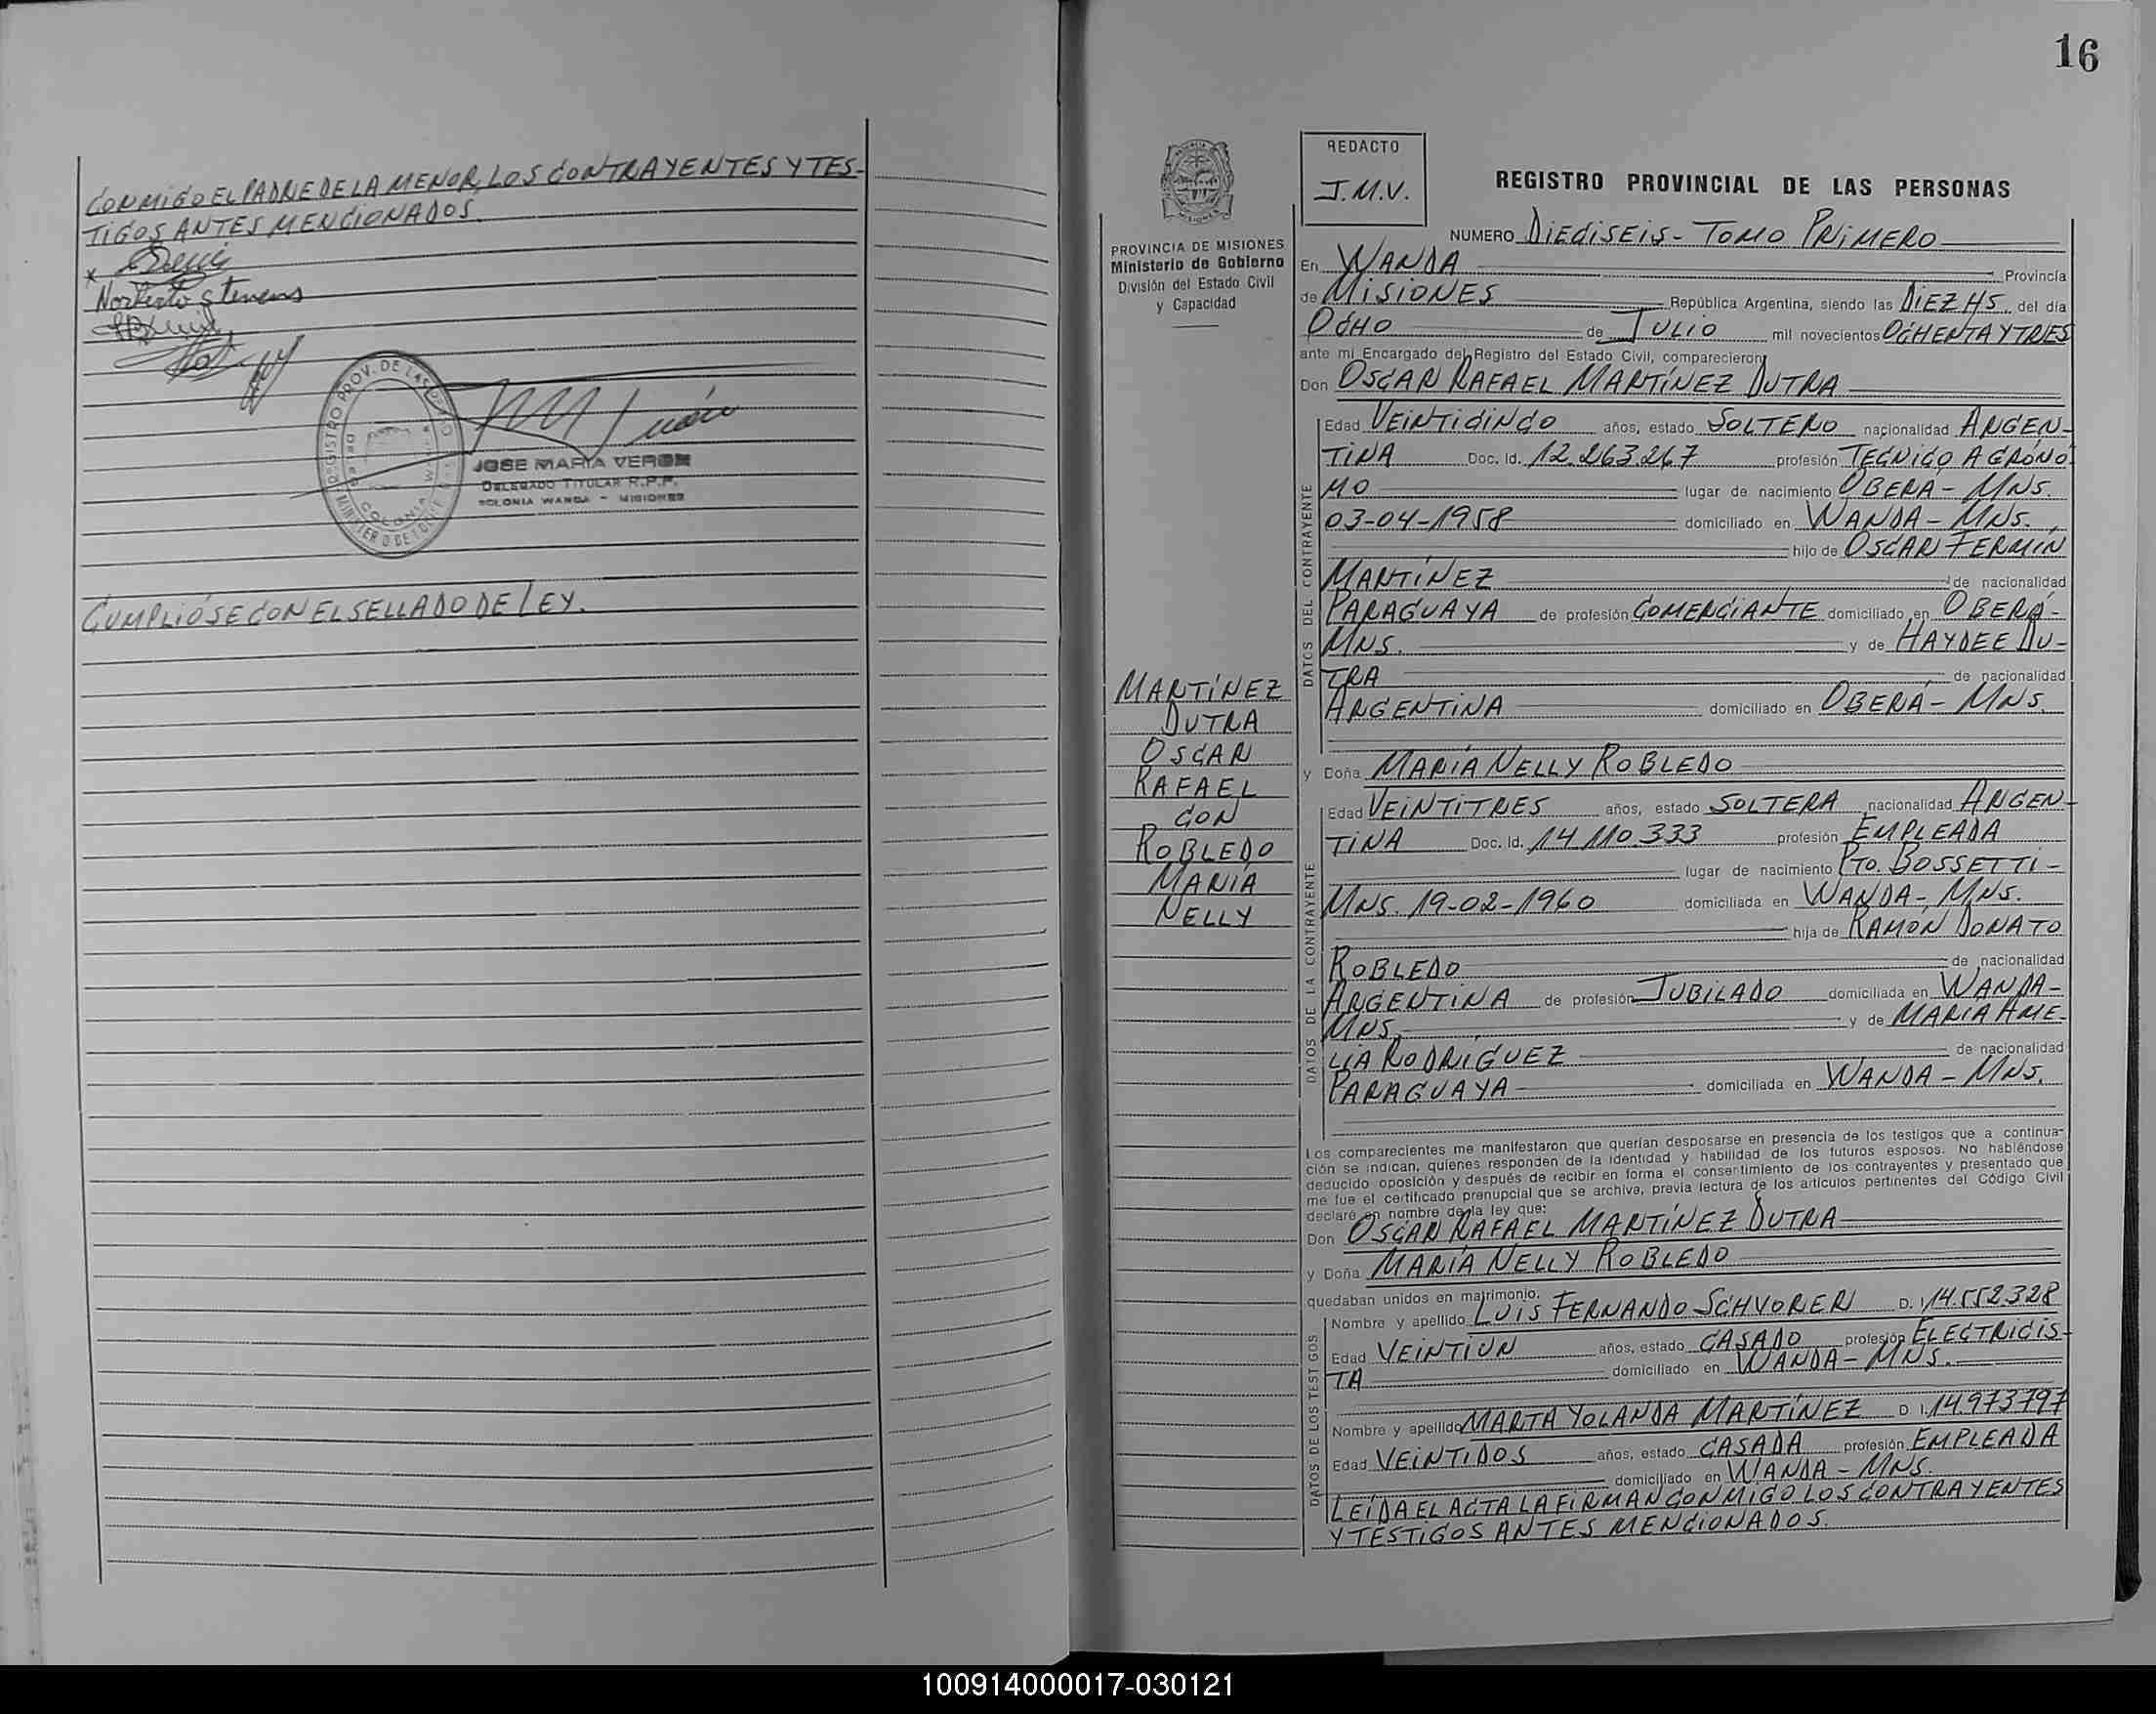 CONMIGO EL PADRE DE LA MENOR, LOS CONTRAYENTES Y TES-
TIGOS ANTES MENCIONADOS.
Norberto Stevens
JOSE MARIA VERON
DELEGADO TITULAR R.P.P.
COLONIA WANDA - MISIONES
CUMPLIÓSE CON EL SELLADO DE LEY.
16
PROVINCIA DE MISIONES
Ministerio de Gobierno
División del Estado Civil
y Capacidad
MARTÍNEZ
DUTRA
OSCAR
RAFAEL
CON
ROBLEDO
MARÍA
NELLY
REDACTO
J.M.V.
REGISTRO PROVINCIAL DE LAS PERSONAS
NUMERO DIECISEIS - TOMO PRIMERO
En WANDA Provincia
de MISIONES República Argentina, siendo las DIEZ HS. del día
OCHO de JULIO mil novecientos OCHENTA Y TRES
ante mi Encargado del Registro del Estado Civil, comparecieron
Don OSCAR RAFAEL MARTÍNEZ DUTRA
DATOS DEL CONTRAYENTE
Edad VEINTICINCO años, estado SOLTERO nacionalidad ARGEN-
TINA Doc. Id. 12.263.267 profesión TECNICO AGRÓNO
MO lugar de nacimiento OBERÁ - MNS.
03-04-1958 domiciliado en WANDA - MNS.
hijo de OSCAR FERMÍN
MARTÍNEZ de nacionalidad
PARAGUAYA de profesión COMERCIANTE domiciliado en OBERÁ-
MNS. y de HAYDEE DU-
TRA de nacionalidad
ARGENTINA domiciliado en OBERÁ - MNS.
y Doña MARÍA NELLY ROBLEDO
DATOS DE LA CONTRAYENTE
Edad VEINTITRES años, estado SOLTERA nacionalidad ARGEN-
TINA Doc. Id. 14 110.333 profesión EMPLEADA
lugar de nacimiento PTO. BOSSETTI -
MNS. 19-02-1960 domiciliada en WANDA - MNS.
hija de RAMÓN DONATO
ROBLEDO de nacionalidad
ARGENTINA de profesión JUBILADO domiciliada en WANDA-
MNS. y de MARIA AME-
LIA RODRÍGUEZ de nacionalidad
PARAGUAYA domiciliada en WANDA - MNS.
Los comparecientes me manifestaron que querían desposarse en presencia de los testigos que a continua-
ción se indican, quienes responden de la identidad y habilidad de los futuros esposos. No habiéndose
deducido oposición y después de recibir en forma el consentimiento de los contrayentes y presentado que
me fue el certificado prenupcial que se archiva, previa lectura de los artículos pertinentes del Código Civil
declaré en nombre de la ley que:
Don OSCAR RAFAEL MARTÍNEZ DUTRA
y Doña MARÍA NELLY ROBLEDO
quedaban unidos en matrimonio.
DATOS DE LOS TESTIGOS
Nombre y apellido LUIS FERNANDO SCHVORER D. I. 14.552.328
Edad VEINTIUN años, estado CASADO profesión ELECTRICIS-
TA domiciliado en WANDA - MNS.
Nombre y apellido MARTA YOLANDA MARTÍNEZ D I. 14.973797
Edad VEINTIDOS años, estado CASADA profesión EMPLEADA
domiciliado en WANDA - MNS.
LEÍDA EL ACTA LA FIRMAN CONMIGO LOS CONTRAYENTES
Y TESTIGOS ANTES MENCIONADOS.
100914000017-030121